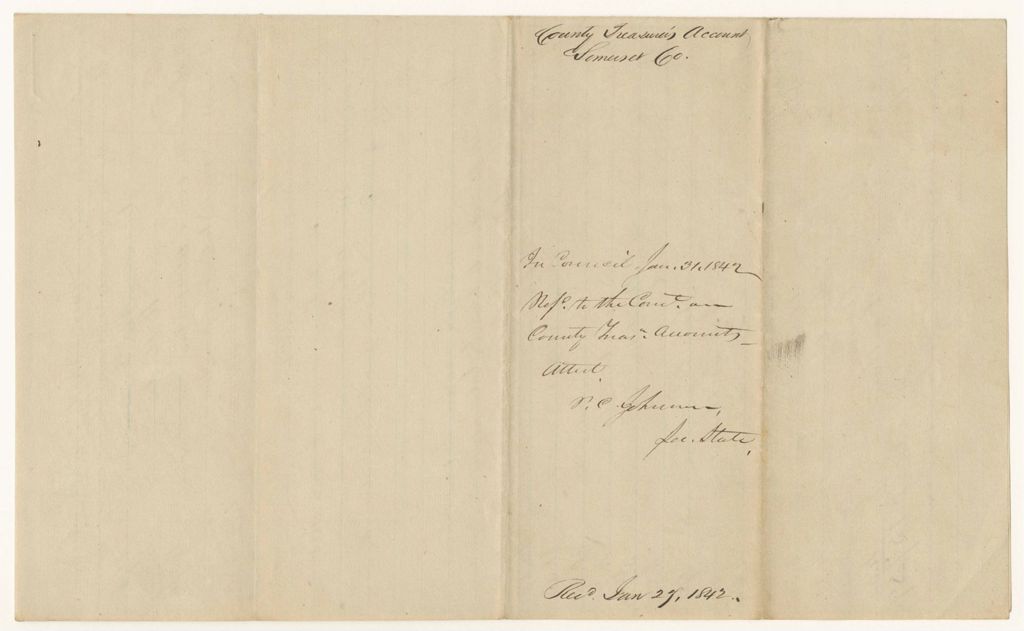 County Treasurer's Account
Somerset Co.
In Council Jan. 31, 1842
Refd. to the Comt. on
County Treasr. Accounts
Attest
P. C. Johnson,
Sec. State,
Recd. Jan 27, 1842.